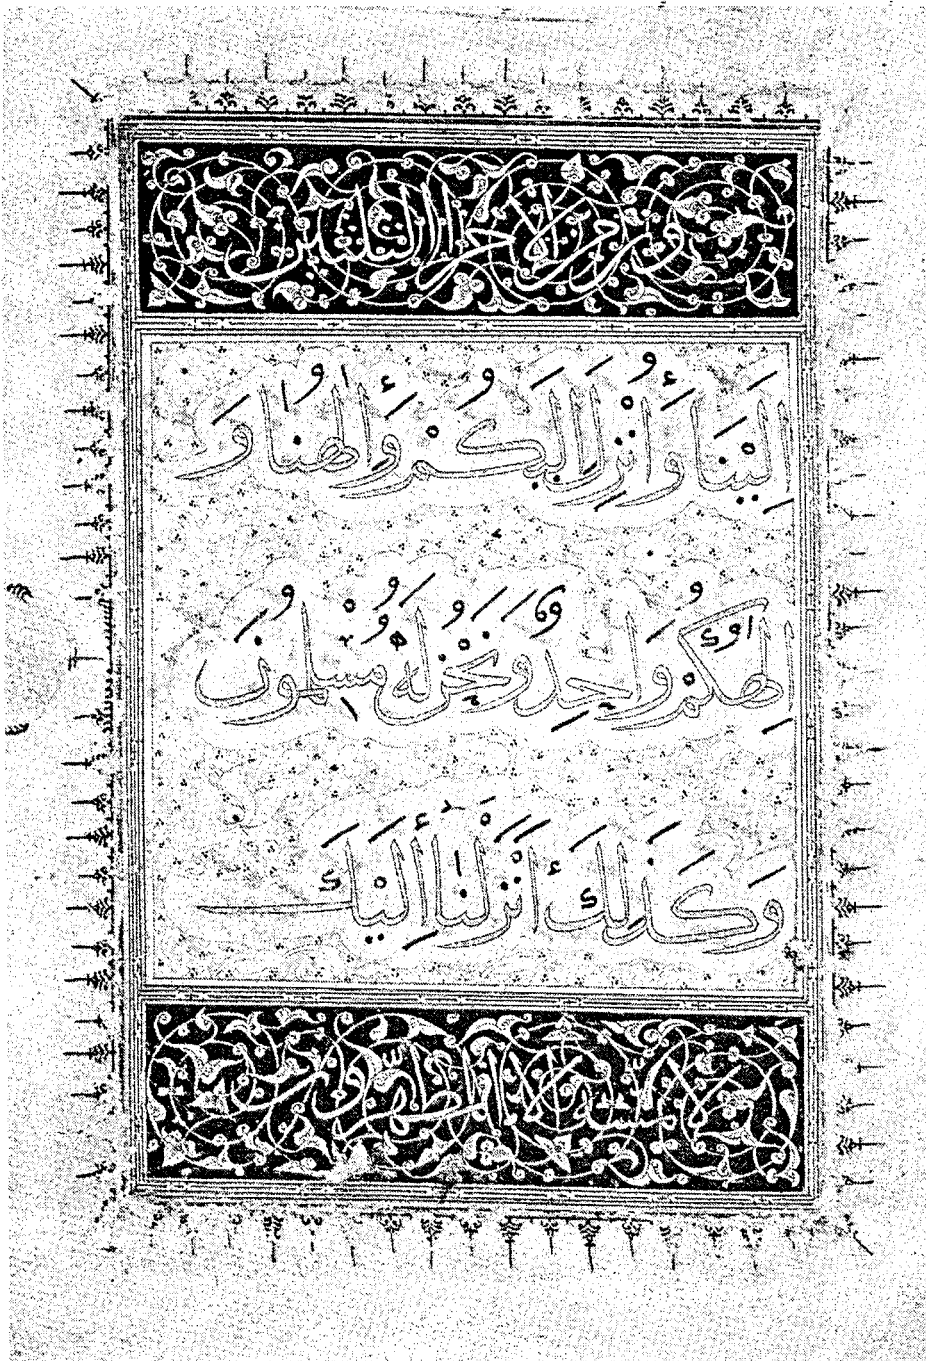 من الاجزا الثلثين
إِلَيْنَا وَأُنْزِلَ إِلَيْكُمْ وَإِلَٰهُنَا وَ
إِلَٰهُكُمْ وَاحِدٌ وَنَحْنُ لَهُ مُسْلِمُونَ
وَكَذَٰلِكَ أَنْزَلْنَا إِلَيْكَ
لا يمسه الا المطهرون